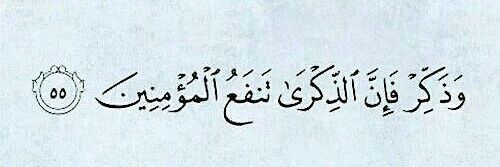 وَذَكِّرْ فَإِنَّ ٱلذِّكْرَىٰ تَنفَعُ ٱلْمُؤْمِنِينَ ٥٥